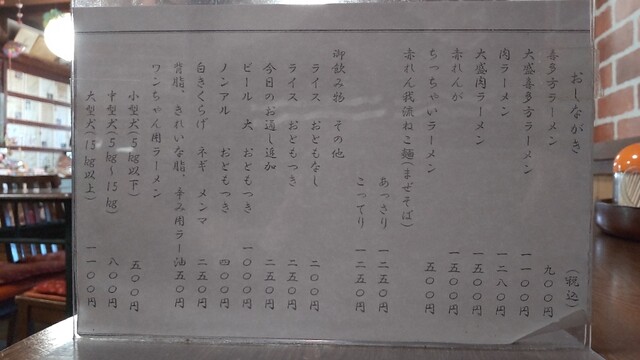 おしながき (税込)
喜多方ラーメン 九〇〇円
大盛喜多方ラーメン 一一〇〇円
肉ラーメン 一二八〇円
大盛肉ラーメン 一五〇〇円
赤れんが 一五〇〇円
ちっちゃいラーメン 五〇〇円
赤れん我流ねこ麺(まぜそば)
あっさり 一二五〇円
こってり 一二五〇円
御飲み物 その他
ライス おともなし 二〇〇円
ライス おともつき 二五〇円
今日のお通し追加 二五〇円
ビール 大 おともつき 一〇〇〇円
ノンアル おともつき 四〇〇円
白きくらげ ネギ メンマ 二五〇円
背脂、きれいな脂、辛み用ラー油 五〇円
ワンちゃん用ラーメン
小型犬(5kg以下) 五〇〇円
中型犬(5kg~15kg) 八〇〇円
大型犬(15kg以上) 一一〇〇円